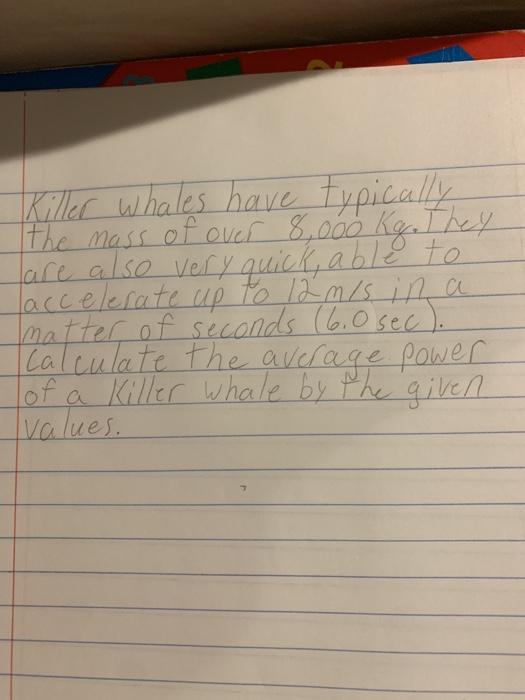 Killer whales have typically
the mass of over 8,000 Kg. They
are also very quick, able to
accelerate up to 12 m/s in a
matter of seconds (6.0 sec).
Calculate the average power
of a Killer whale by the given
values.